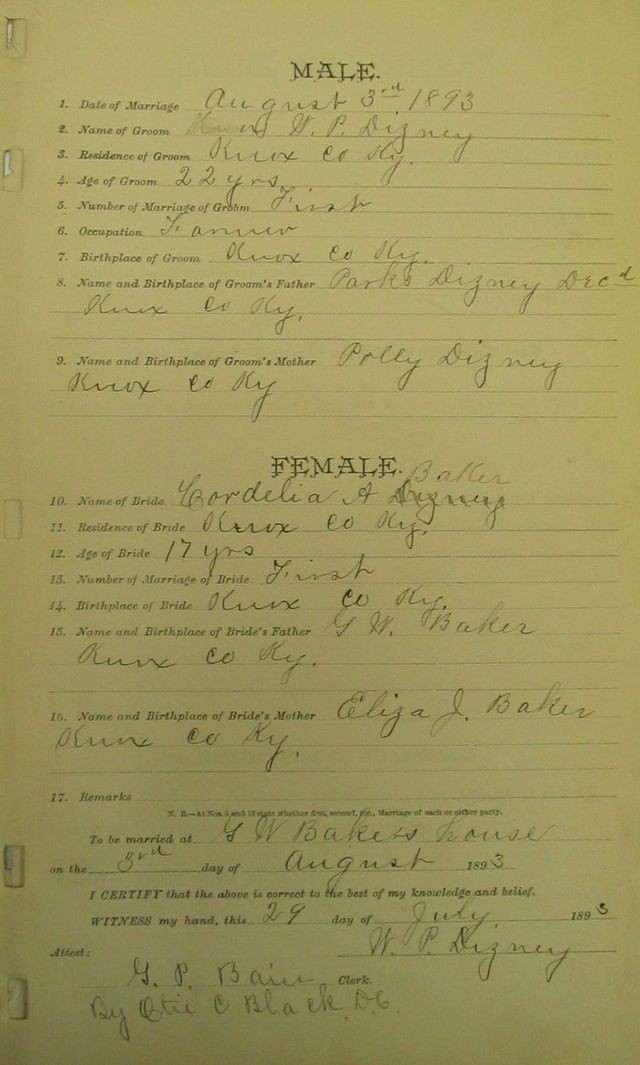 MALE.
1. Date of Marriage August 3rd 1893
2. Name of Groom W. P. Dizney
3. Residence of Groom Knox Co Ky.
4. Age of Groom 22 yrs
5. Number of Marriage of Groom First
6. Occupation Farmer
7. Birthplace of Groom Knox Co Ky.
8. Name and Birthplace of Groom's Father Parks Dizney Decd
Knox Co Ky.
9. Name and Birthplace of Groom's Mother Polly Dizney
Knox Co Ky
FEMALE.
Baker
10. Name of Bride Cordelia A Dizney
11. Residence of Bride Knox Co Ky.
12. Age of Bride 17 yrs
13. Number of Marriage of Bride First
14. Birthplace of Bride Knox Co Ky.
15. Name and Birthplace of Bride's Father G W. Baker
Knox Co Ky.
16. Name and Birthplace of Bride's Mother Eliza J. Baker
Knox Co Ky.
17. Remarks
N. B.—At Nos. 5 and 13 state whether first, second, etc., Marriage of each or either party.
To be married at G W Bakers house
on the 3rd day of August 1893
I CERTIFY that the above is correct to the best of my knowledge and belief.
WITNESS my hand, this 29 day of July 1893
W. P. Dizney
Attest:
G. P. Bain Clerk.
By C Black D.C.